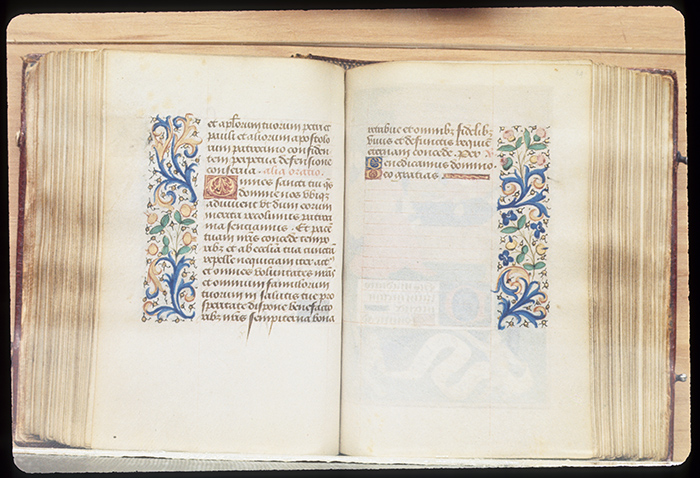 et aplorum tuorum petri et
pauli et aliorum apostolo
rum patrocinio confiden
tem perpetua defensione
conserua. alia oratio.
Omnes sancti tui qs
domine nos vbiqz
adiuuent vt dum eorum
merita recolimus patroci
nia sentiamus. Et pacē
tuam nr̄is concede tempo
ribz et ab ecclesia tua cunctā
repelle nequiciam iter actꝰ
et omnes voluntates nr̄as
et omnium famulorum
tuorum in salutis tue pro
speritate dispone benefacto
ribz nr̄is sempiterna bona
retribue et omnibz fidelibz
viuis et defunctis requiē
eternam concede. Per
Benedicamus domino
Deo gratias.